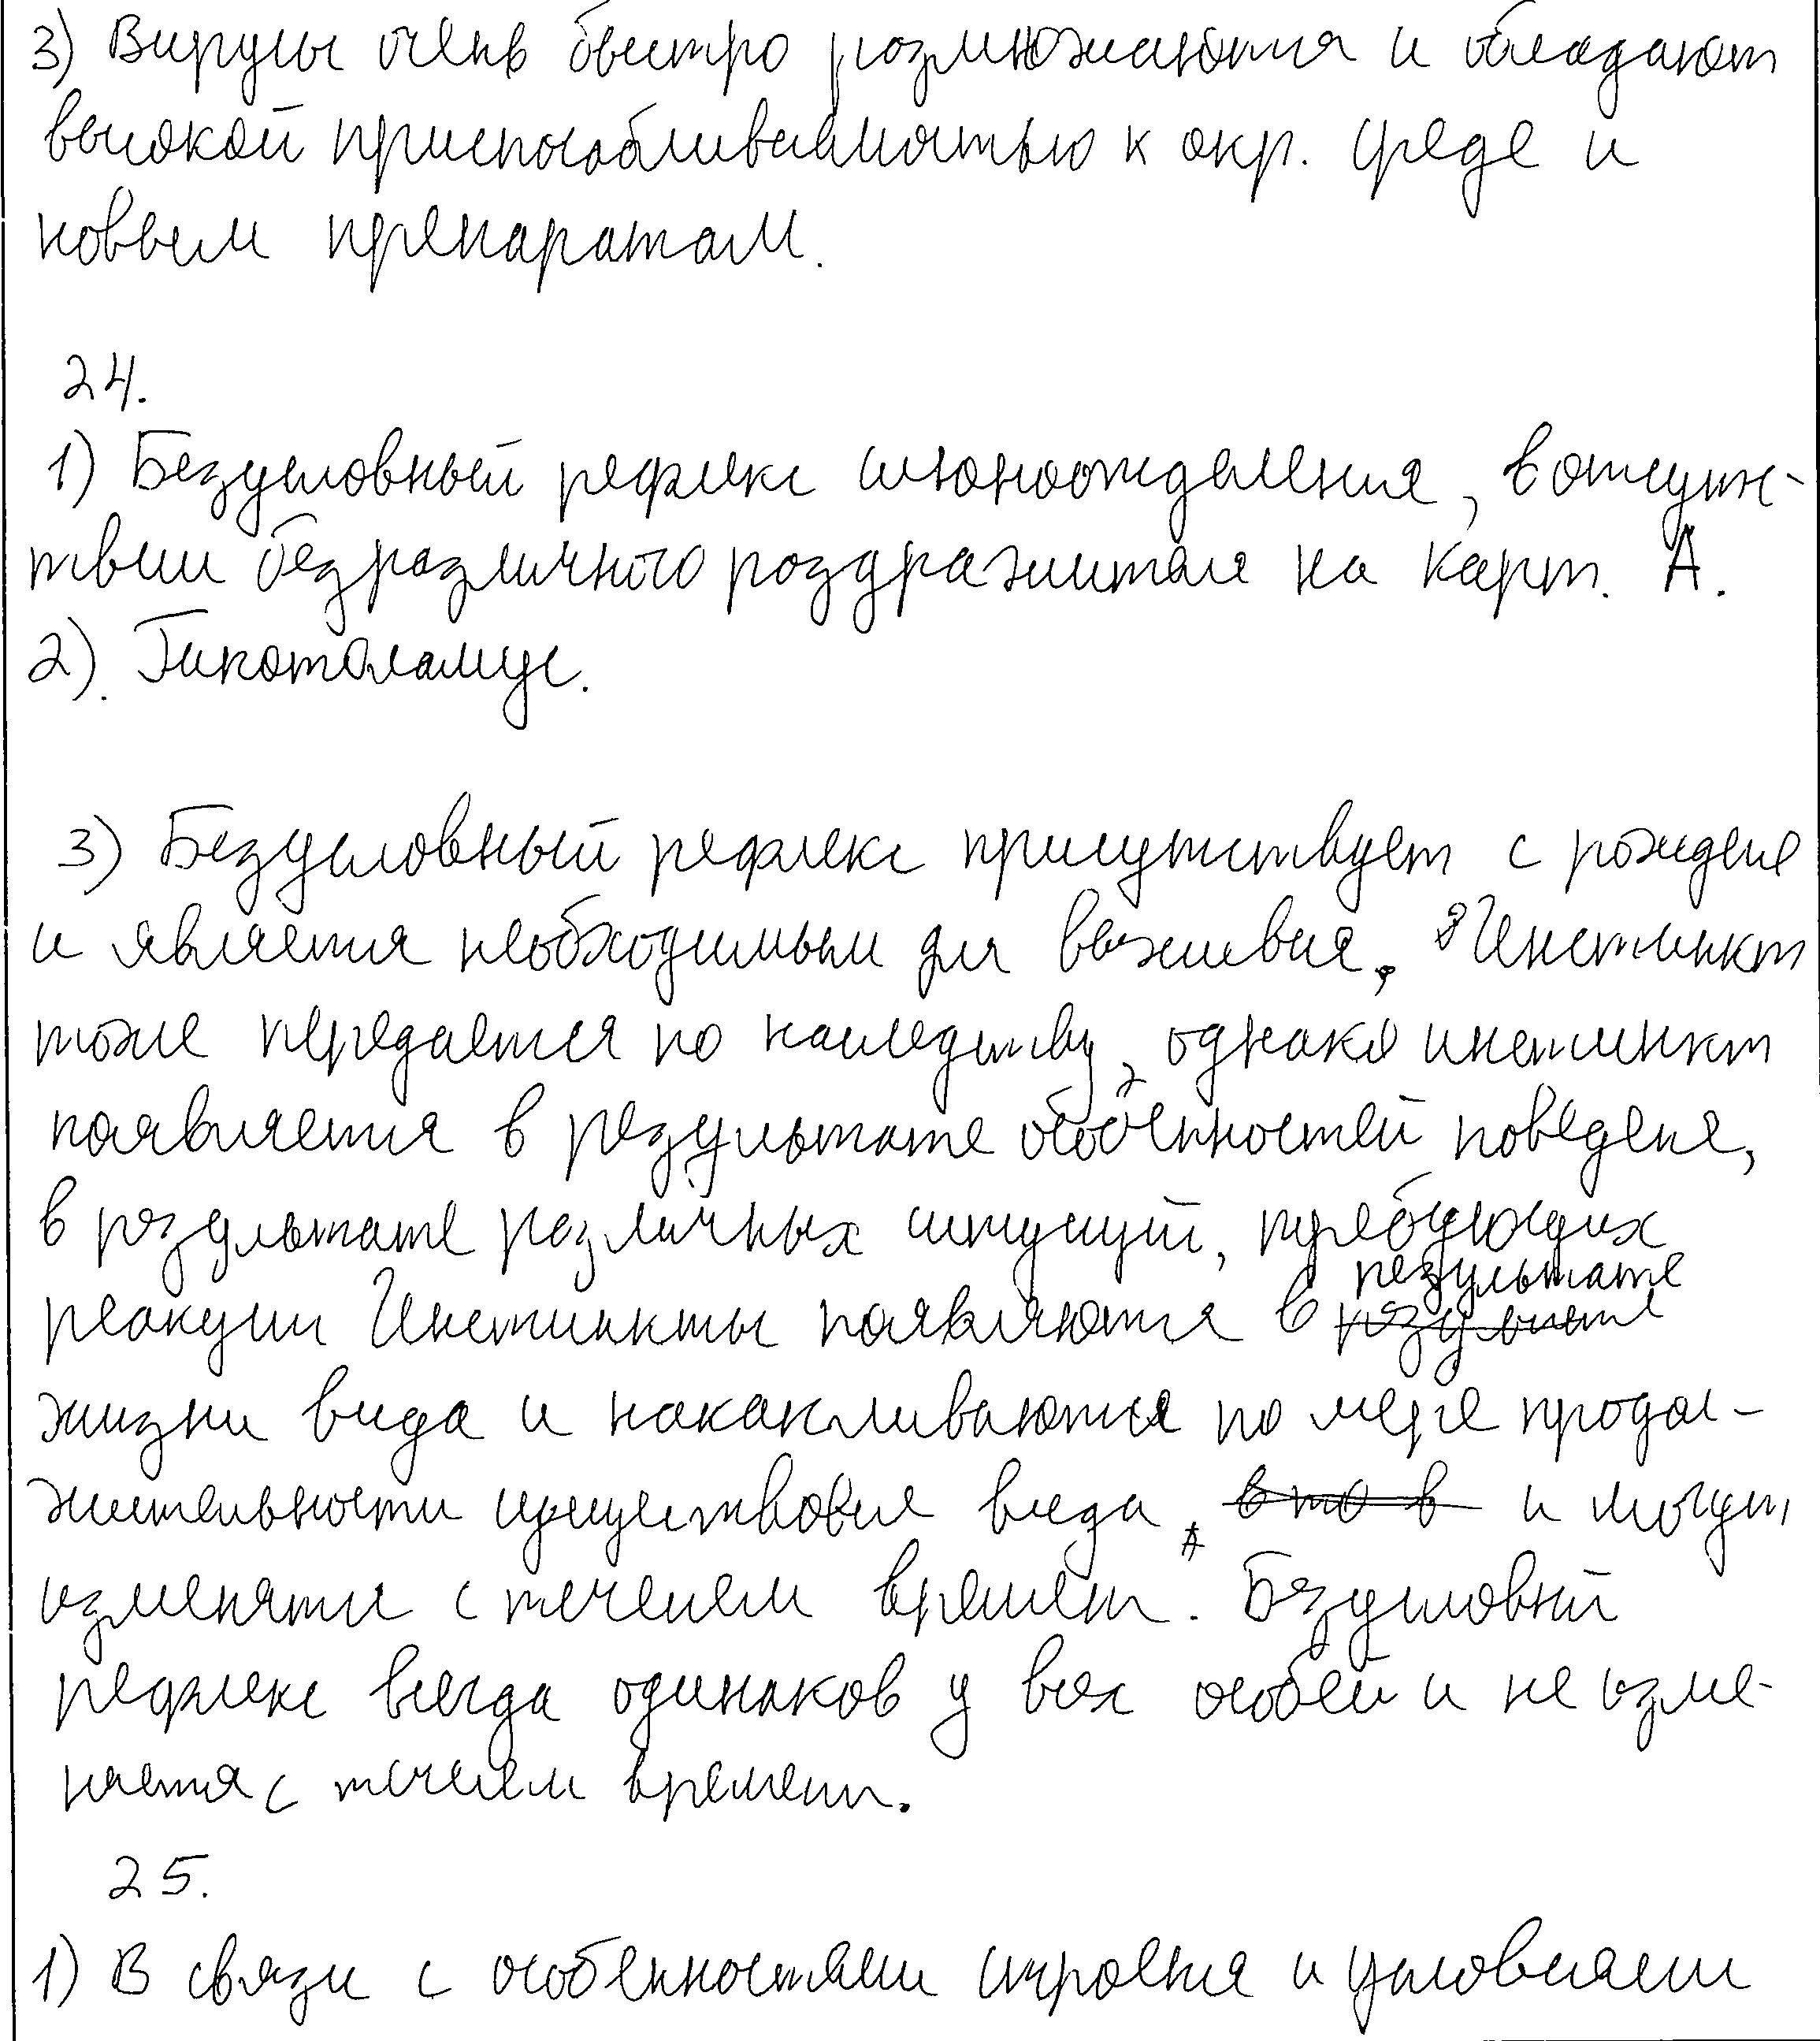 3) Вирусы очень быстро размножаются и обладают
высокой приспосабливаемостью к окр. среде и
новым препаратам.
24.
1) Безусловный рефлекс слюноотделения, в отсутс-
твии безразличного раздражителя на карт. А.
2). Гипоталамус.
3) Безусловный рефлекс присутствует с рожденя
и является необходимым для выживия. Инстинкт
тоже передается по наследству, однако инстинкт
появляется в результате особенностей поведеня,
в результате различных ситуций, требующих
реакции Инстинкты появляются в результате
жизни вида и накапливаются по мере продол-
жительности существовия вида, и могут
изменятся с теченем времен. Безусловнй
рефлекс всегда одинаков у всех особей и не изме-
няется с течеем времени.
25.
1) В связи с особенностями строеня и условиями